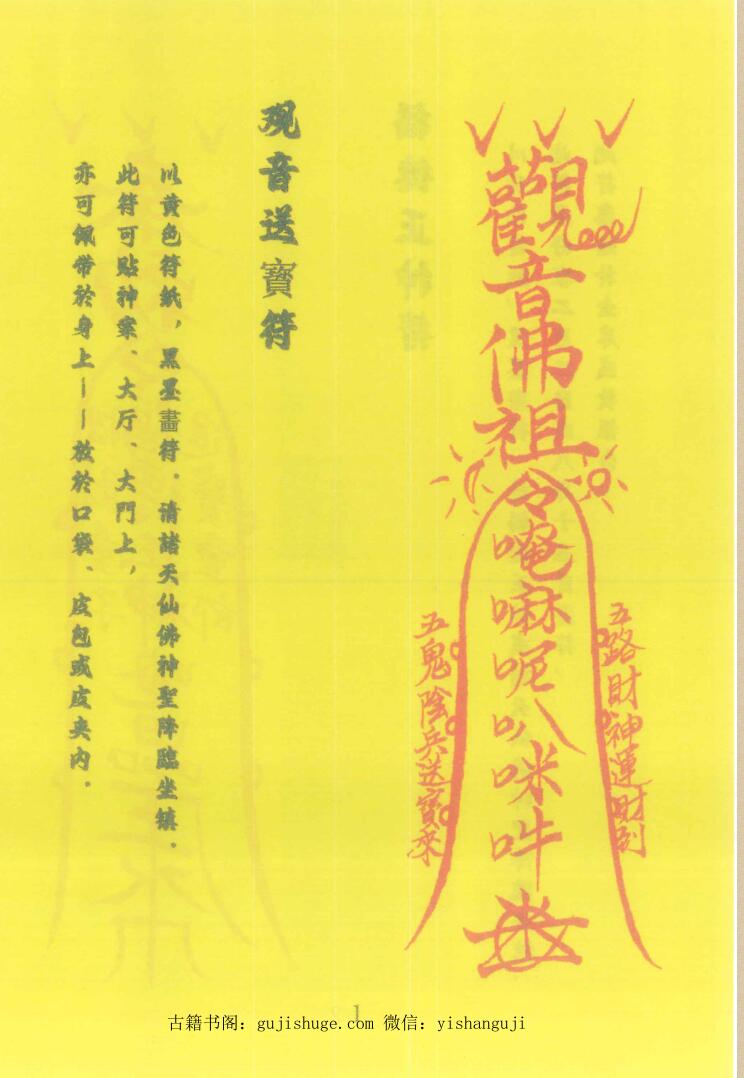 觀音佛祖令唵嘛呢叭咪吽
五路財神運財到
五鬼陰兵送寶來
观音送寳符
以黄色符紙，黑墨畫符．请諸天仙佛神聖降臨坐镇．
此符可贴神案、大厅、大門上，
亦可佩带於身上——放於口袋、皮包或皮夹内．
1
古籍书阁：gujishuge.com 微信：yishanguji